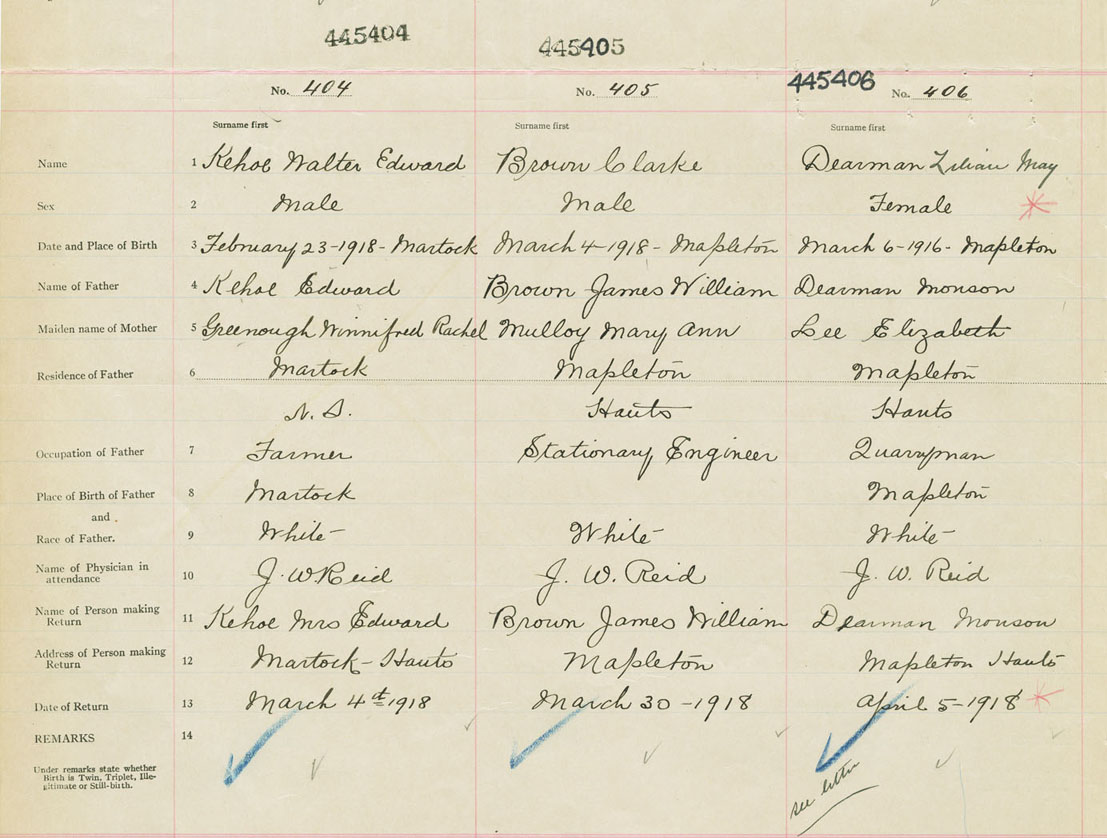 445404 445405 445406
No. 404 No. 405 No. 406
Surname first Surname first Surname first
Name 1 Kehoe Walter Edward Brown Clarke Dearman Lilian May
Sex 2 Male Male Female
Date and Place of Birth 3 February 23-1918- Martock March 4-1918- Mapleton March 6-1916- Mapleton
Name of Father 4 Kehoe Edward Brown James William Dearman Monson
Maiden name of Mother 5 Greenough Winnifred Rachel Mulloy Mary Ann Lee Elizabeth
Residence of Father 6 Martock Mapleton Mapleton
N. S. Hants Hants
Occupation of Father 7 Farmer Stationary Engineer Quarryman
Place of Birth of Father 8 Martock Mapleton
and
Race of Father. 9 White White White
Name of Physician in
attendance 10 J. W Reid J. W. Reid J. W. Reid
Name of Person making
Return 11 Kehoe Mrs Edward Brown James William Dearman Monson
Address of Person making
Return 12 Martock- Hants Mapleton Mapleton Hants
Date of Return 13 March 4th 1918 March 30-1918 April 5-1918
REMARKS 14
Under remarks state whether
Birth is Twin, Triplet, Ille-
gitimate or Still-birth.
see letter